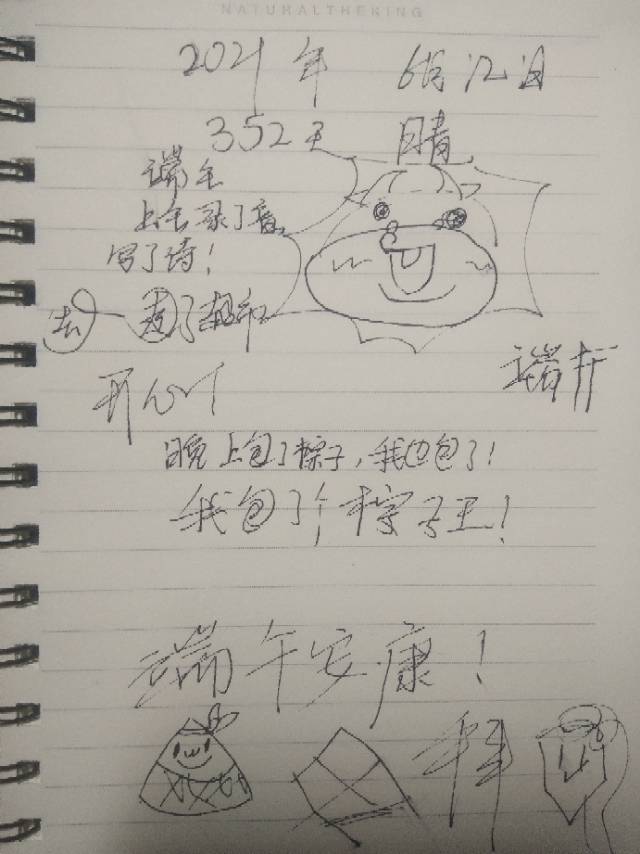 NATURALTHEKING
2021年 6月12日
352天 晴
端午
上午录了音
写了诗!
去
开心!
晚上包了粽子,我也包了!
我包了个粽子王!
端午安康!